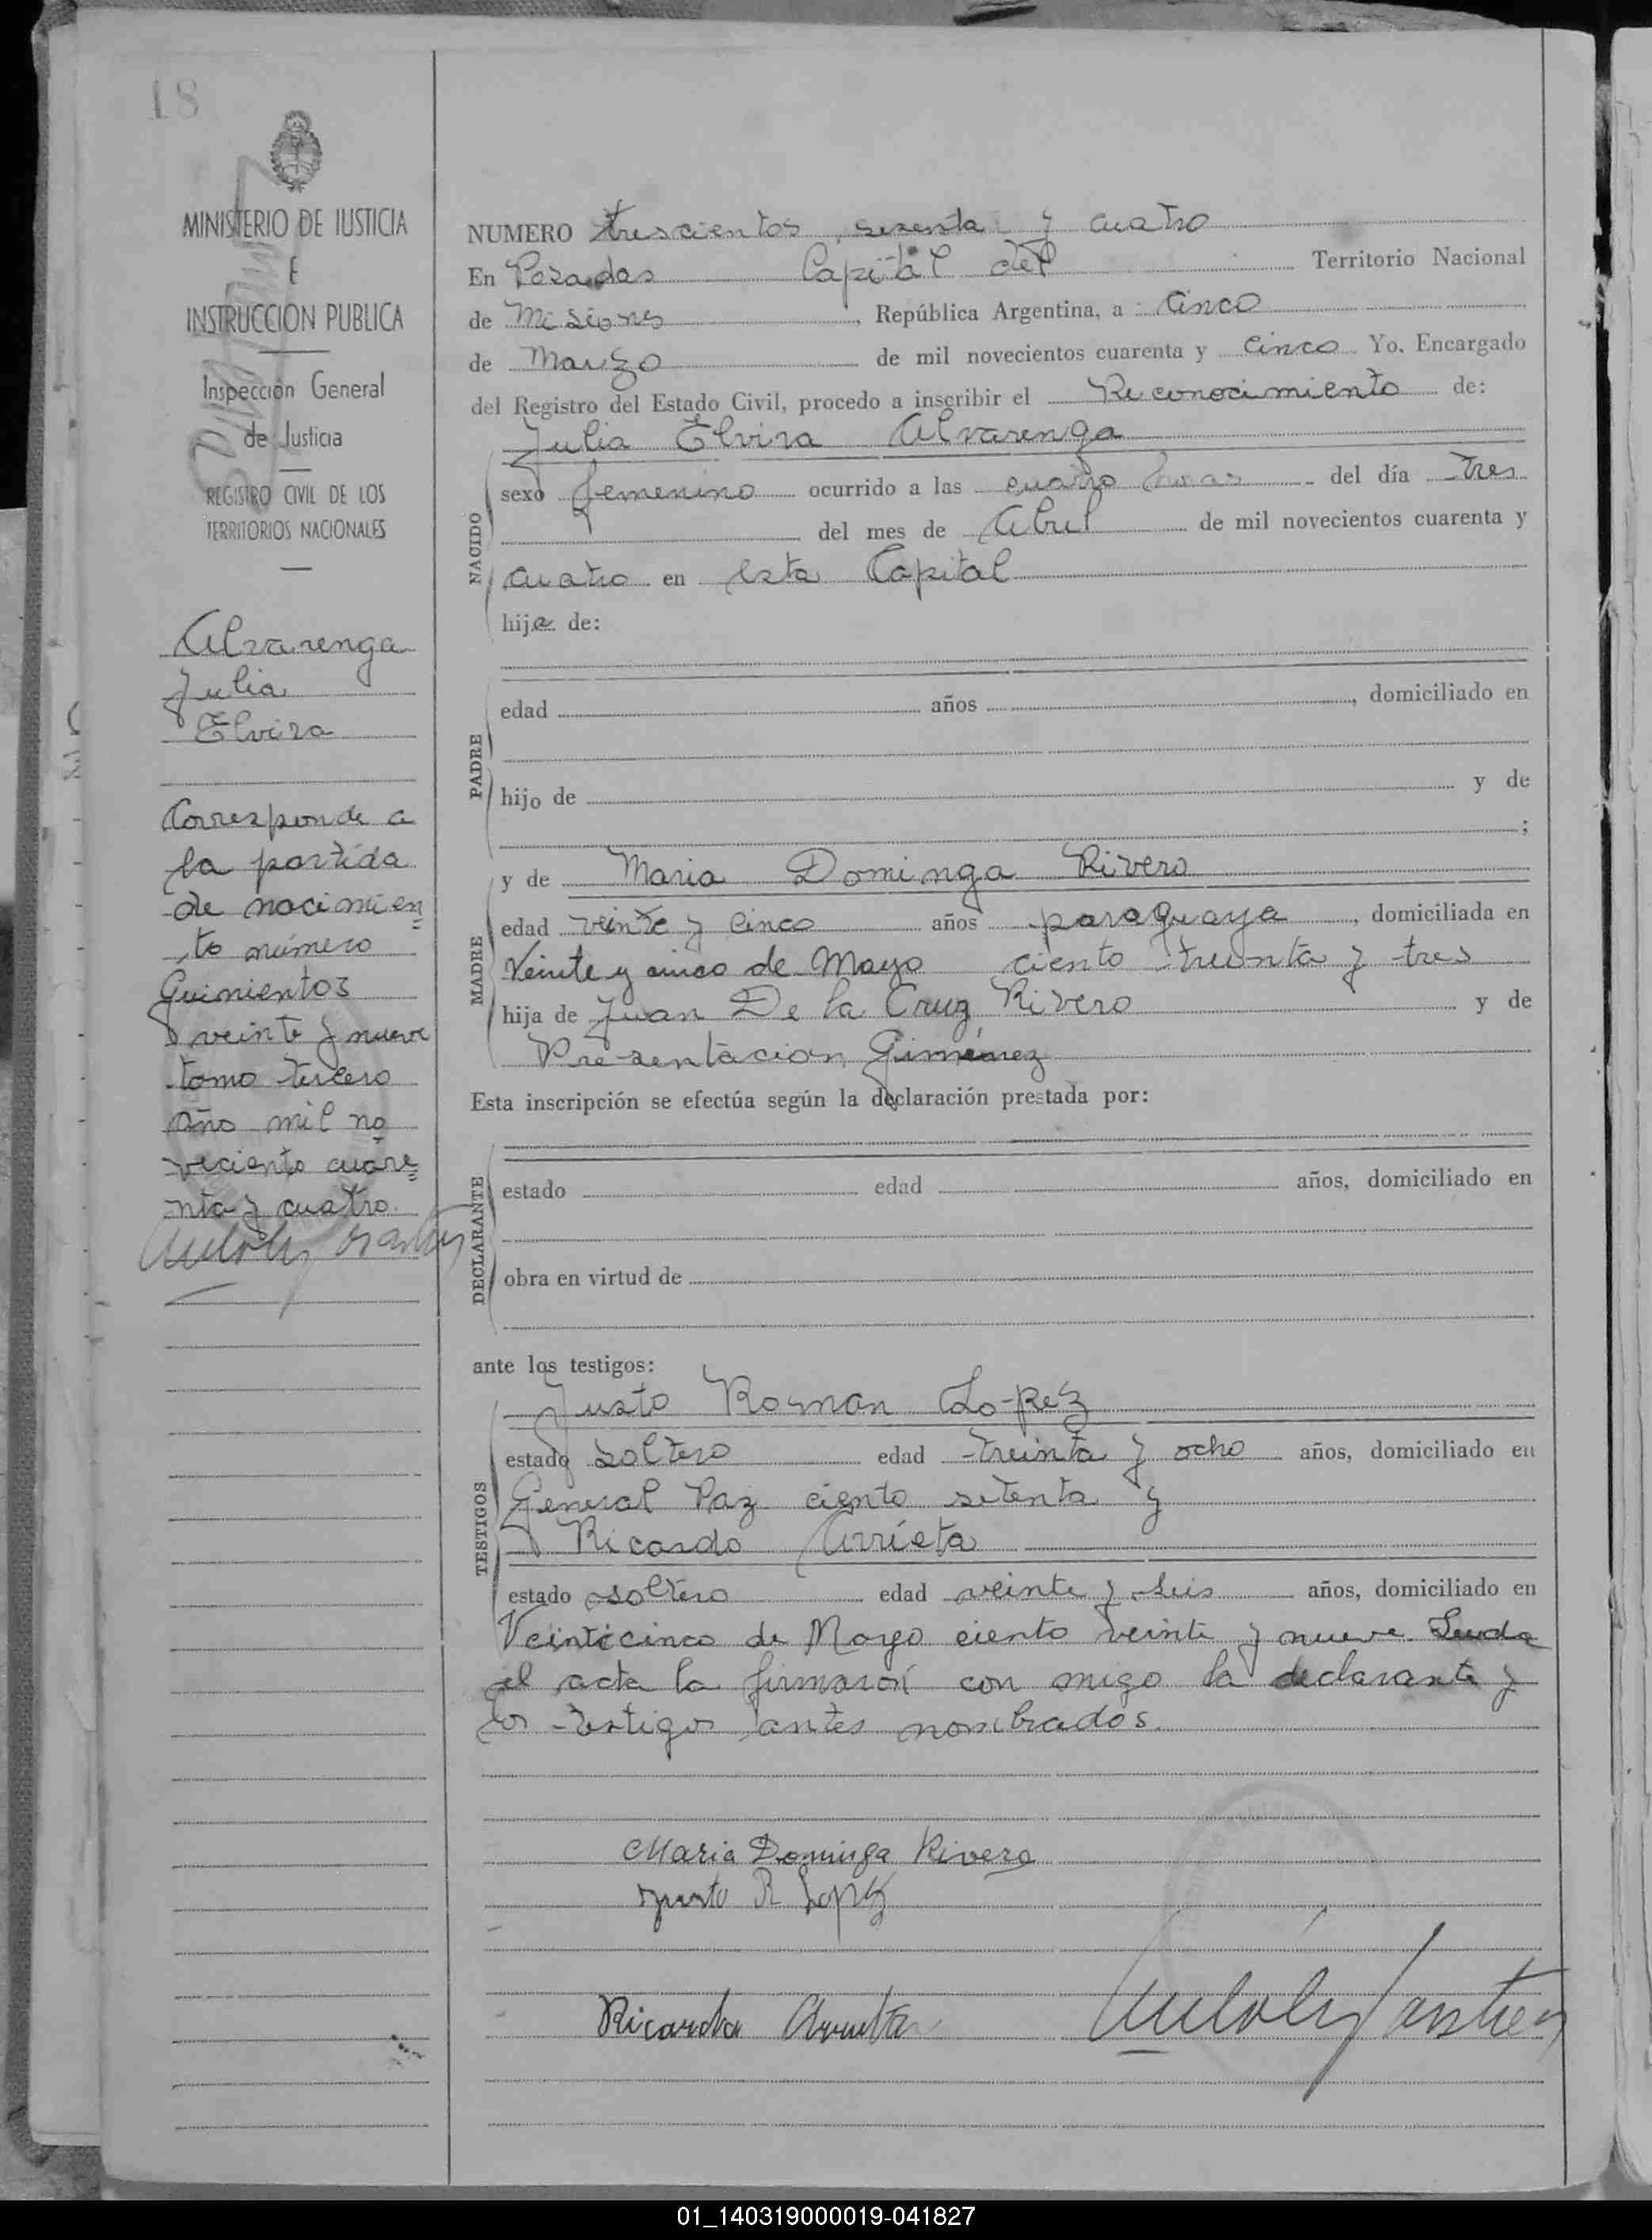 18
MINISTERIO DE JUSTICIA
E
INSTRUCCION PUBLICA
Inspección General
de Justicia
REGISTRO CIVIL DE LOS
TERRITORIOS NACIONALES
Alvarenga
Julia
Elvira
Corresponde a
la partida
de nacimien
to número
Quinientos
veinte y nueve
tomo tercero
año mil no
veciento cuare
nta y cuatro.
NUMERO trescientos sesenta y cuatro
En Posadas Capital del Territorio Nacional
de Misiones, República Argentina, a cinco
de Marzo de mil novecientos cuarenta y cinco Yo. Encargado
del Registro del Estado Civil, procedo a inscribir el Reconocimiento de:
Julia Elvira Alvarenga
NACIDO
sexo femenino ocurrido a las cuatro horas del día tres
del mes de Abril de mil novecientos cuarenta y
cuatro en esta Capital
hija de:
PADRE
edad años , domiciliado en
hijo de y de
;
y de Maria Dominga Rivero
MADRE
edad veinte y cinco años paraguaya, domiciliada en
Veinte y cinco de Mayo ciento treinta y tres
hija de Juan De la Cruz Rivero y de
Presentacion Gimenez
Esta inscripción se efectúa según la declaración prestada por:
DECLARANTE
estado edad años, domiciliado en
obra en virtud de
ante los testigos:
Justo Roman Lopez
TESTIGOS
estado soltero edad treinta y ocho años, domiciliado en
General Paz ciento setenta y
Ricardo Arrieta
estado soltero edad veinte y seis años, domiciliado en
Veinticinco de Mayo ciento veinte y nueve. Leida
el acta la firmaron con migo la declarante y
los testigos antes nombrados.
Maria Dominga Rivero
Justo R Lopez
Ricardo Arrieta
01_140319000019-041827